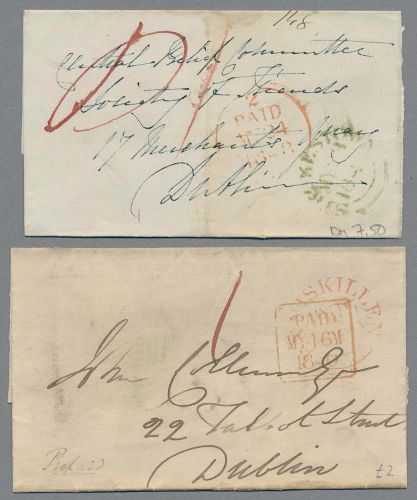 148
Central Relief Committee
Society of Friends
17 Merchants Quay
Dublin
2
PAID
24
DM 7.50
1
SKILLEN
PAID
16
John
22 Talbot Street
Dublin
Prepaid
£2